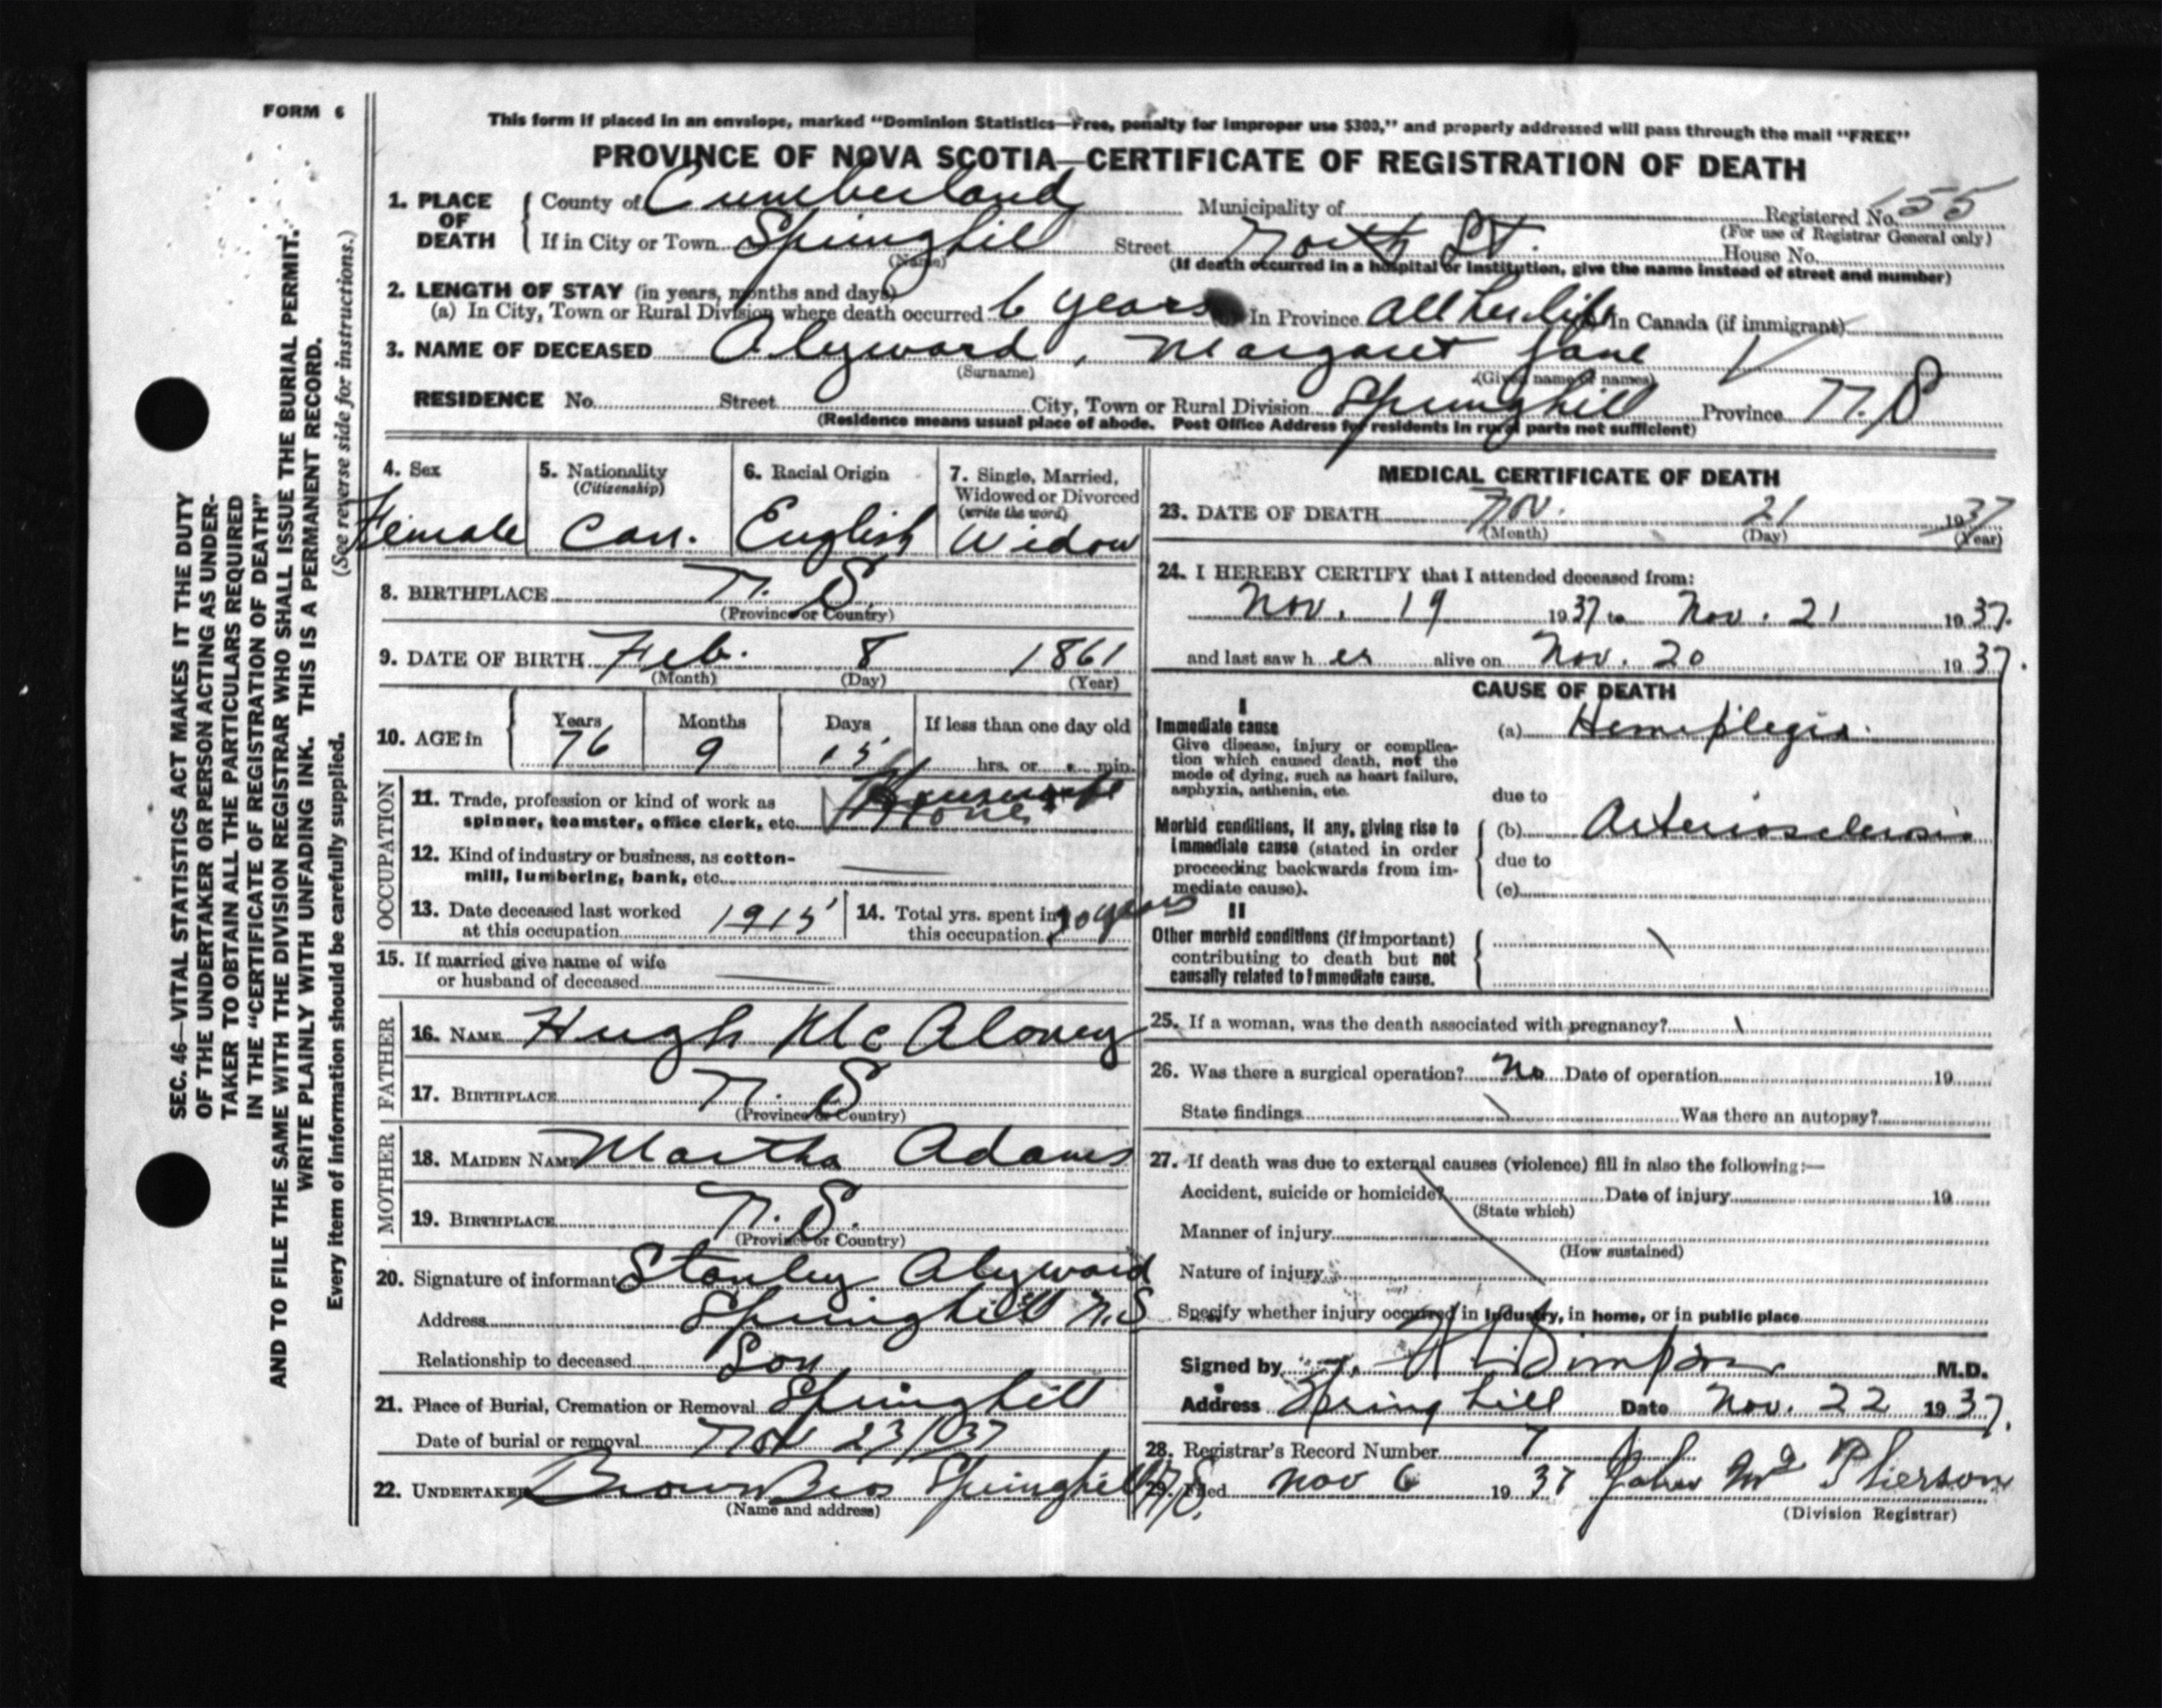 FORM 6
This form if placed in an envelope, marked "Dominion Statistics—Free, penalty for improper use $300," and properly addressed will pass through the mail "FREE"
PROVINCE OF NOVA SCOTIA—CERTIFICATE OF REGISTRATION OF DEATH
1. PLACE OF DEATH
County of Cumberland Municipality of Registered No. 155
(For use of Registrar General only)
If in City or Town Springhill Street North St. House No.
(Name)
(If death occurred in a hospital or institution, give the name instead of street and number)
2. LENGTH OF STAY (in years, months and days)
(a) In City, Town or Rural Division where death occurred 6 years In Province all her life In Canada (if immigrant)
3. NAME OF DECEASED Alyward, Margaret Jane
(Surname) (Given name or names)
RESIDENCE No. Street City, Town or Rural Division Springhill Province N.S
(Residence means usual place of abode. Post Office Address for residents in rural parts not sufficient)
4. Sex
Female
5. Nationality
(Citizenship)
Can.
6. Racial Origin
English
7. Single, Married,
Widowed or Divorced
(write the word)
Widow
8. BIRTHPLACE N. S.
(Province or Country)
9. DATE OF BIRTH Feb. 8 1861
(Month) (Day) (Year)
10. AGE in
Years Months Days If less than one day old
76 9 13 hrs. or min.
OCCUPATION
11. Trade, profession or kind of work as
spinner, teamster, office clerk, etc.
12. Kind of industry or business, as cotton-
mill, lumbering, bank, etc.
13. Date deceased last worked
at this occupation 1915
14. Total yrs. spent in
this occupation years
15. If married give name of wife
or husband of deceased
FATHER
16. NAME Hugh McAloney
17. BIRTHPLACE N. S.
(Province or Country)
MOTHER
18. MAIDEN NAME Martha Adams
19. BIRTHPLACE N. S.
(Province or Country)
20. Signature of informant Stanley Alyward
Address Springhill N.S
Relationship to deceased Son
21. Place of Burial, Cremation or Removal Springhill
Date of burial or removal Nov 23/37
22. UNDERTAKER Brown Bros Springhill N.S.
(Name and address)
MEDICAL CERTIFICATE OF DEATH
23. DATE OF DEATH Nov. 21 1937
(Month) (Day) (Year)
24. I HEREBY CERTIFY that I attended deceased from:
Nov. 19 1937 to Nov. 21 1937.
and last saw her alive on Nov. 20 1937.
CAUSE OF DEATH
I
Immediate cause
Give disease, injury or complica-
tion which caused death, not the
mode of dying, such as heart failure,
asphyxia, asthenia, etc.
(a) Hemiplegia.
due to
Morbid conditions, if any, giving rise to
immediate cause (stated in order
proceeding backwards from im-
mediate cause).
(b) Arteriosclerosis
due to
(c)
II
Other morbid conditions (if important)
contributing to death but not
causally related to immediate cause.
25. If a woman, was the death associated with pregnancy?
26. Was there a surgical operation? No Date of operation 19
State findings Was there an autopsy?
27. If death was due to external causes (violence) fill in also the following:—
Accident, suicide or homicide? Date of injury 19
(State which)
Manner of injury
(How sustained)
Nature of injury
Specify whether injury occurred in industry, in home, or in public place
Signed by Simpson M.D.
Address Spring hill Date Nov. 22 1937.
28. Registrar's Record Number 7
29. Filed Nov 6 1937 John McPherson
(Division Registrar)
SEC. 46—VITAL STATISTICS ACT MAKES IT THE DUTY
OF THE UNDERTAKER OR PERSON ACTING AS UNDER-
TAKER TO OBTAIN ALL THE PARTICULARS REQUIRED
IN THE "CERTIFICATE OF REGISTRATION OF DEATH"
AND TO FILE THE SAME WITH THE DIVISION REGISTRAR WHO SHALL ISSUE THE BURIAL PERMIT.
WRITE PLAINLY WITH UNFADING INK. THIS IS A PERMANENT RECORD.
Every item of information should be carefully supplied. (See reverse side for instructions.)